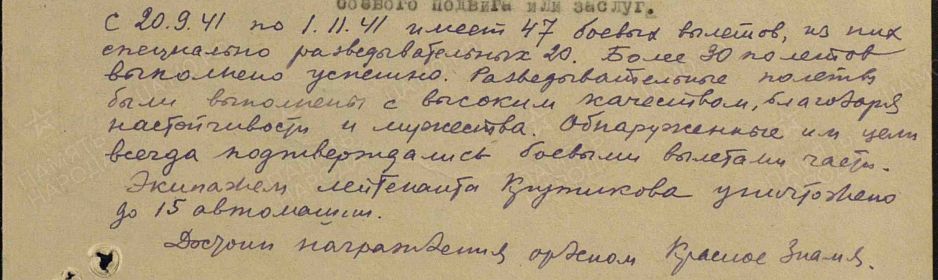 боевого подвига или заслуг.
С 20.9.41 по 1.11.41 имеет 47 боевых вылетов, из них
специально разведывательных 20. Более 30 полетов
выполнено успешно. Разведывательные полеты
были выполнены с высоким качеством, благодаря
настойчивости и мужества. Обнаруженные им цели
всегда подтверждались боевыми вылетами части.
Экипажем лейтенанта уничтожено
до 15 автомашин.
Достоин награждения орденом Красное Знамя.